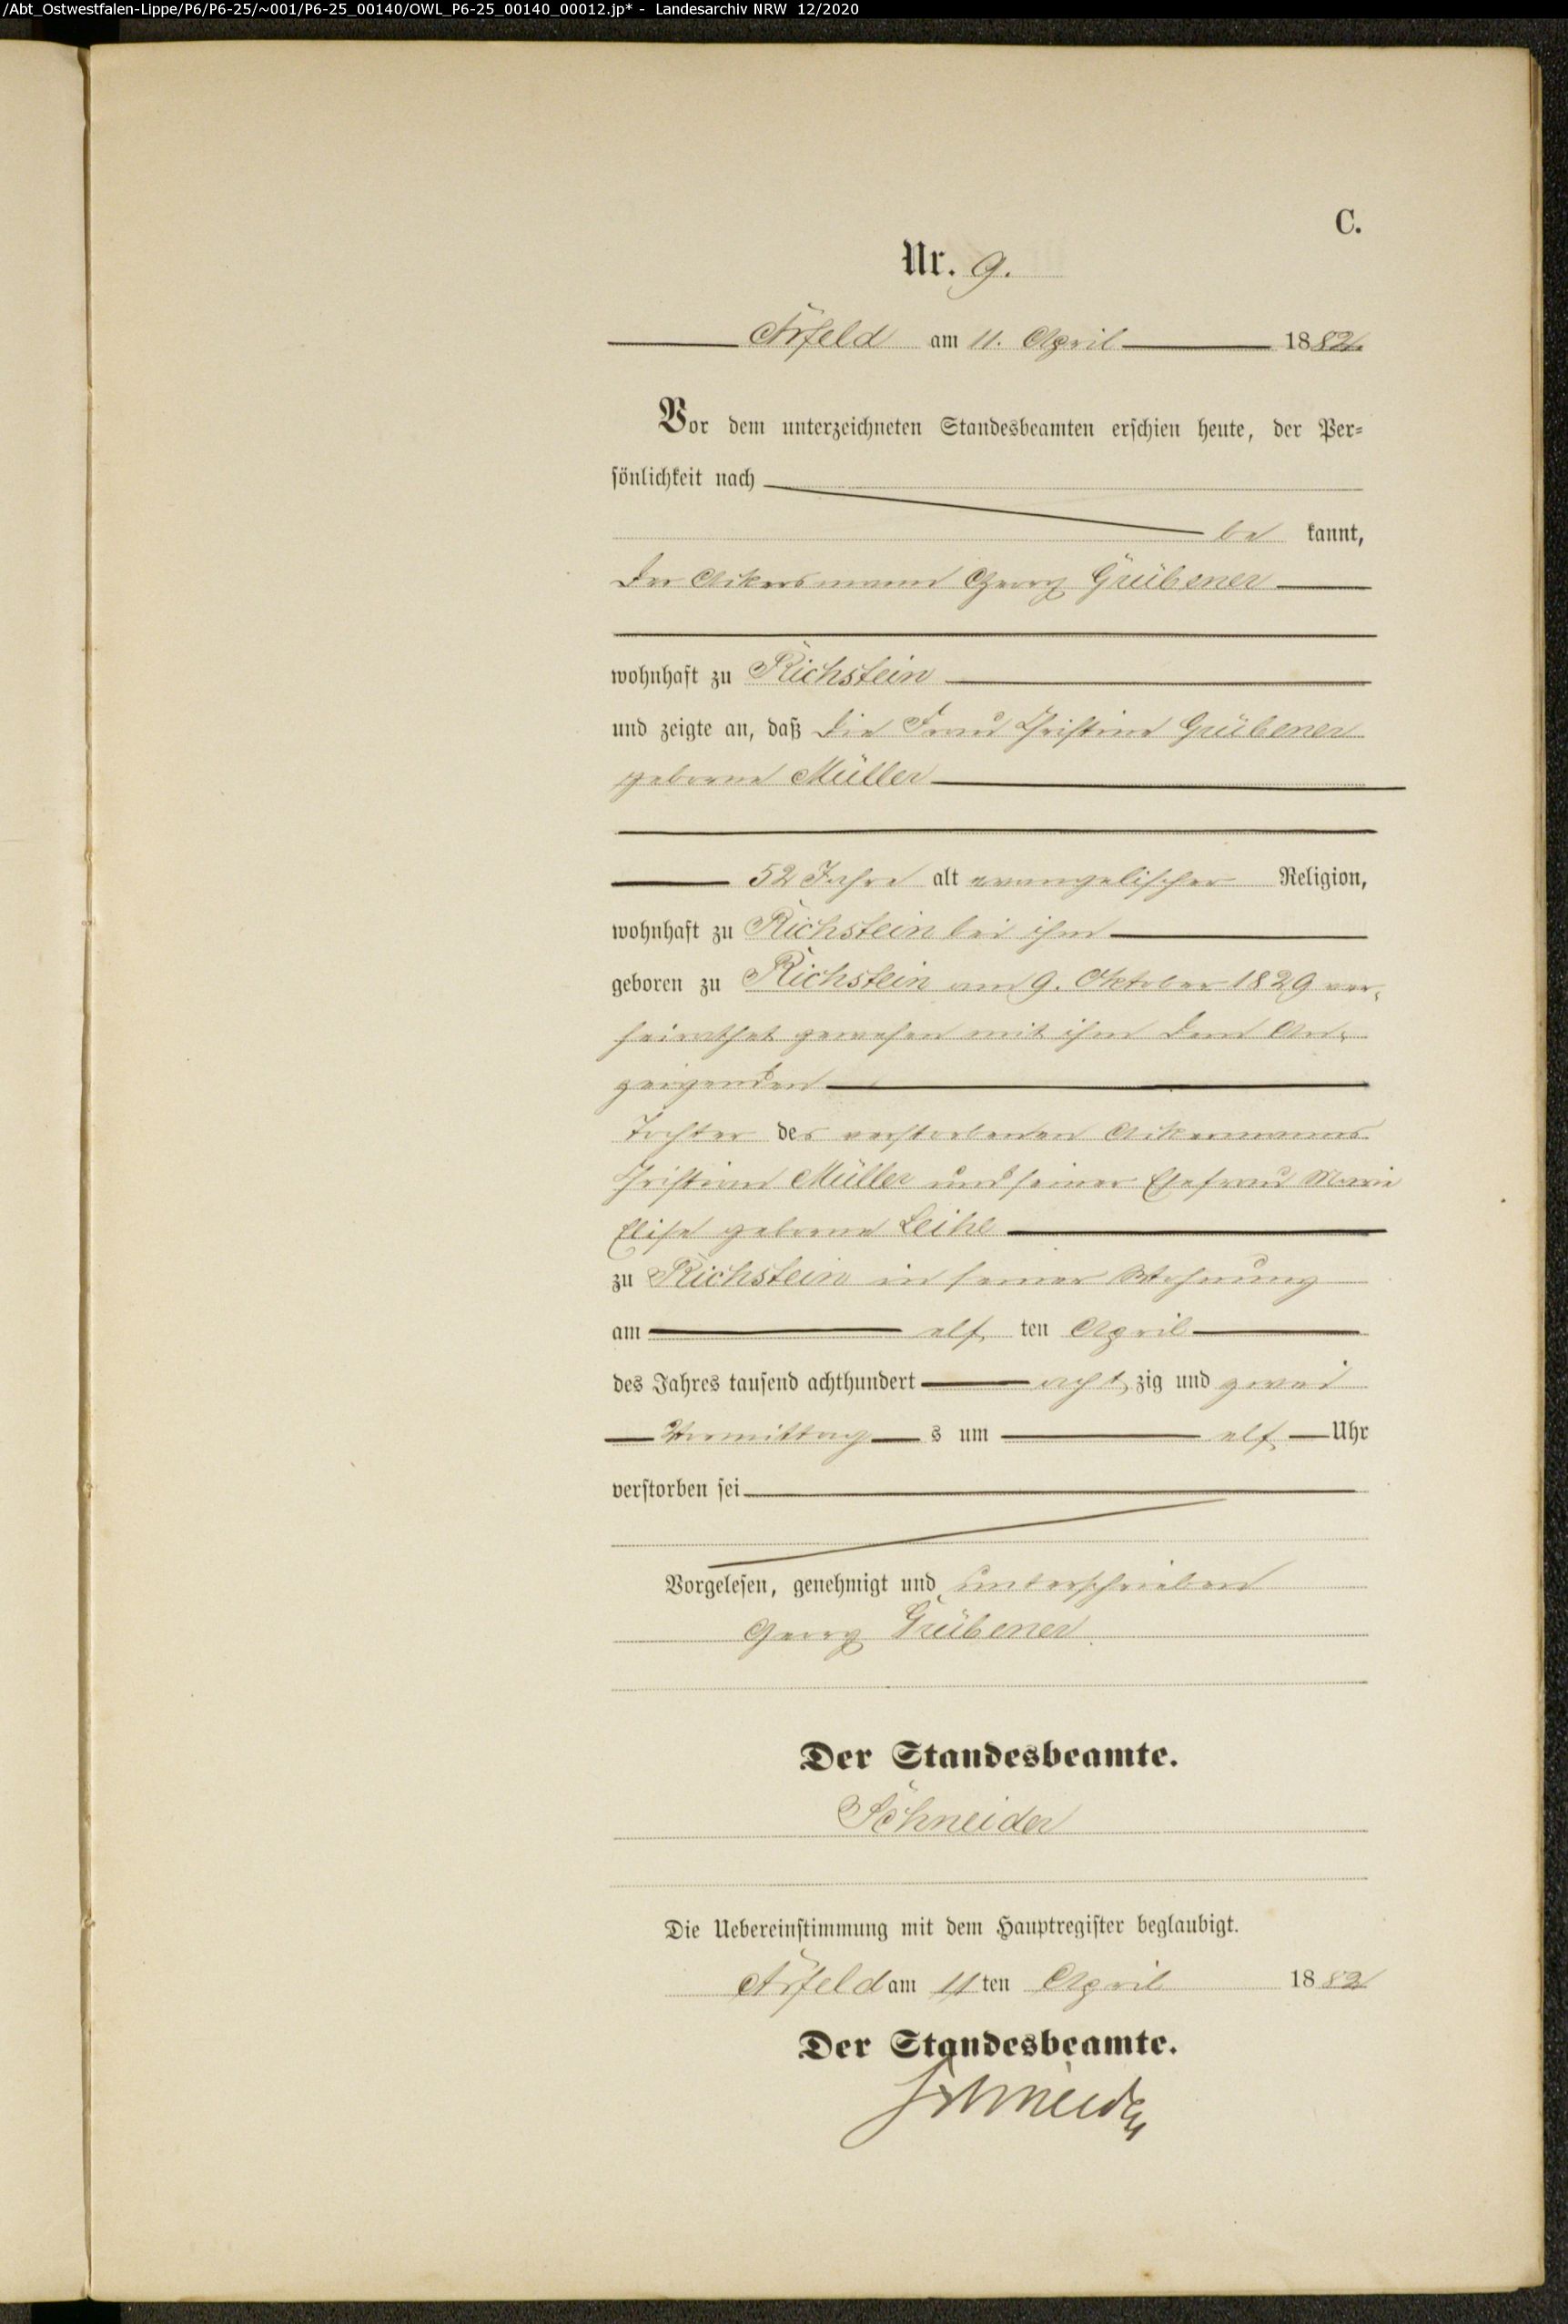 /Abt_Ostwestfalen-Lippe/P6/P6-25/~001/P6-25_00140/OWL_P6-25_00140_00012.jp* - Landesarchiv NRW 12/2020
C.
Nr. 9.
Arfeld am 11. April 1882.
Vor dem unterzeichneten Standesbeamten erschien heute, der Per=
sönlichkeit nach
be kannt,
der Ackersmann Georg Grübener
wohnhaft zu Richstein
und zeigte an, daß die Frau Christine Grübener
geborne Müller
52 Jahre alt evangelischer Religion,
wohnhaft zu Richstein bei ihm
geboren zu Richstein am 9. Oktober 1829 ver-
heirathet gewesen mit ihm dem An-
zeigenden
Tochter des verstorbenen Ackermanns
Christian Müller und seiner Ehefrau Marie
Elise geborne
zu Richstein in seiner Wohnung
am elf ten April
des Jahres tausend achthundert acht zig und zwei
Vormittag s um elf Uhr
verstorben sei
Vorgelesen, genehmigt und unterschrieben
Georg Grübener
Der Standesbeamte.
Schneider
Die Uebereinstimmung mit dem Hauptregister beglaubigt.
Arfeld am 11 ten April 1882
Der Standesbeamte.
Schneider